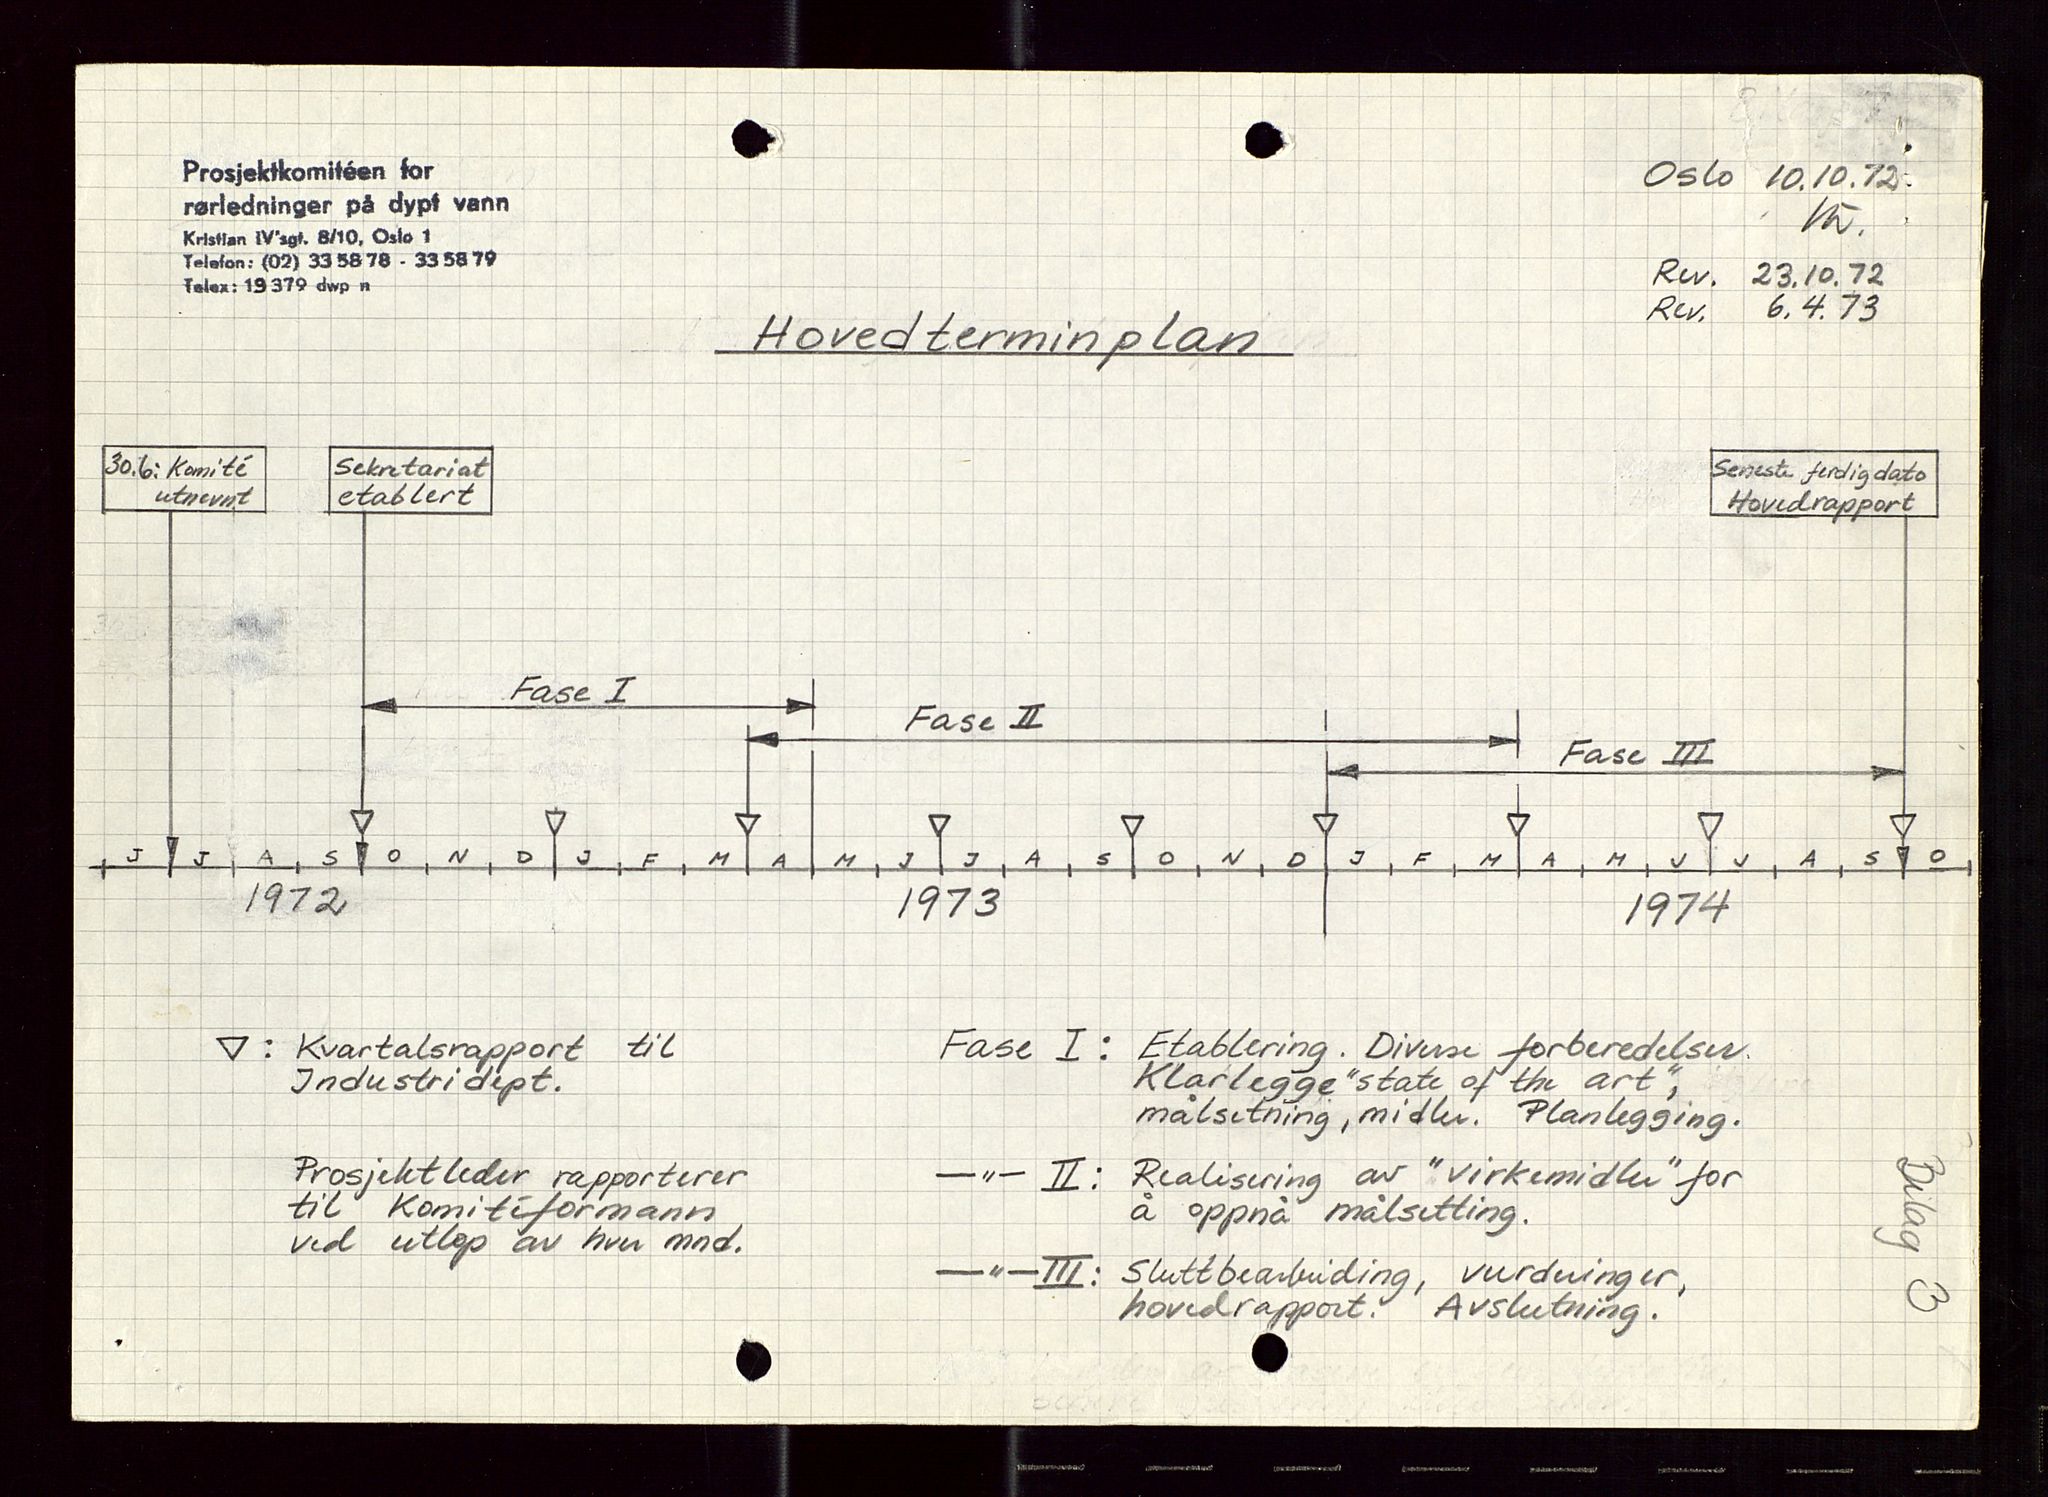 Prosjektkomitéen for
rørledninger på dypt vann
Kristian IV'sgt. 8/10, Oslo 1
Telefon: (02) 33 58 78 - 33 58 79
Telex: 19 379 dwp n
Oslo 10.10.72
Rev. 23.10.72
Rev. 6.4.73
Hovedterminplan
30.6: Komité
utnevnt
Sekretariat
etablert
Seneste ferdigdato
Hovedrapport
Fase I
Fase II
Fase III
J J A S O N D J F M A M J J A S O N D J F M A M J J A S O
1972 1973 1974
▽: Kvartalsrapport til
Industridept.
Prosjektleder rapporterer
til Komitéformann
ved utløp av hver mnd.
Fase I: Etablering. Diverse forberedelser.
Klarlegge "state of the art",
målsetning, midler. Planlegging.
—"— II: Realisering av "virkemidler" for
å oppnå målsetting.
—"— III: Sluttbearbeiding, vurderinger,
hovedrapport. Avslutning.
Bilag 3